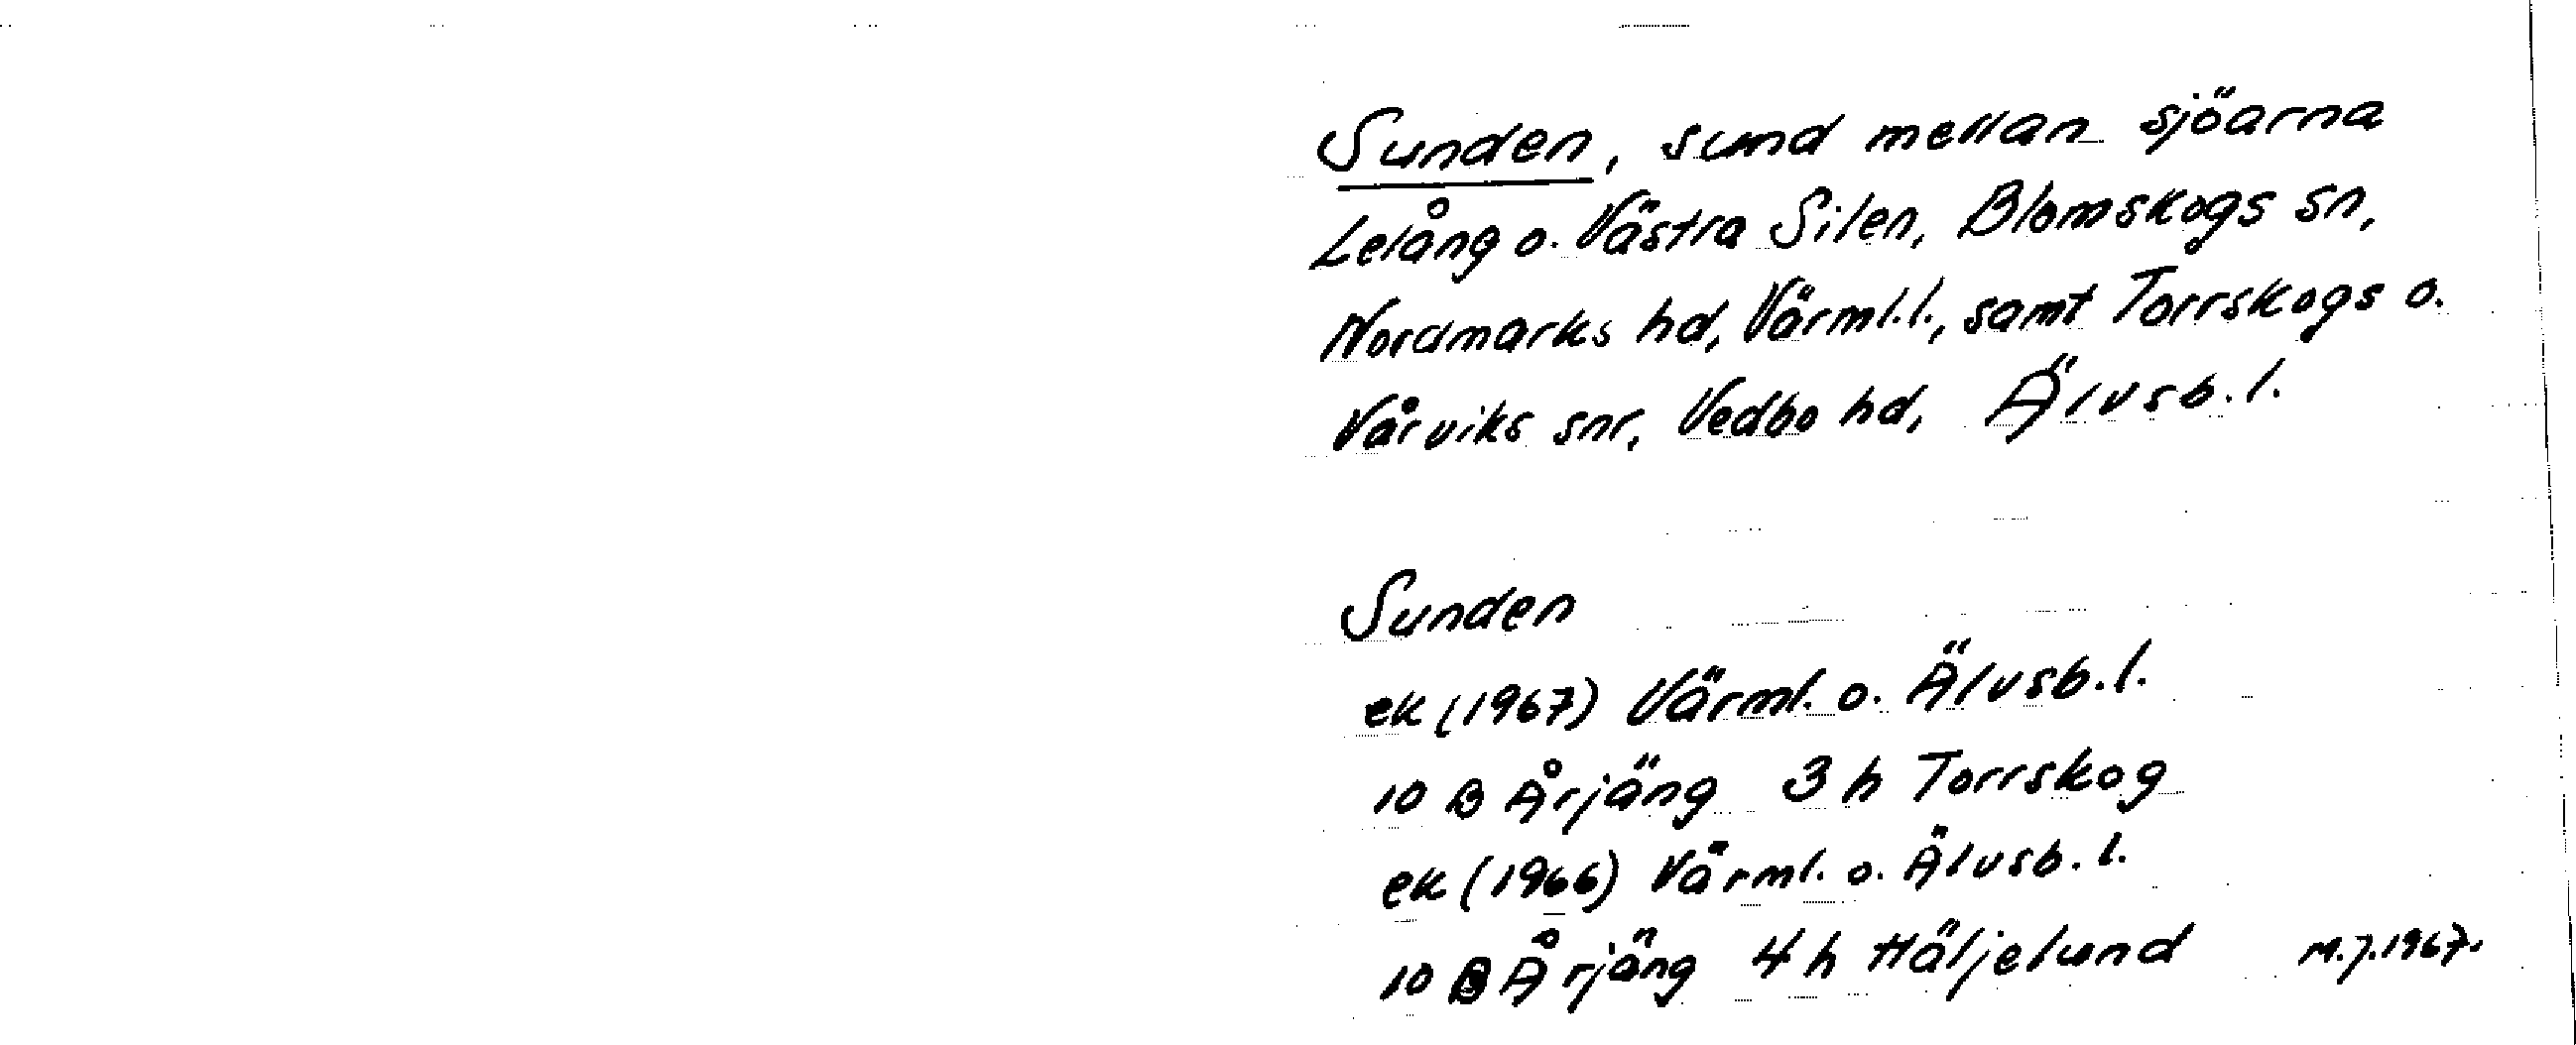 Sunden, sund mellan sjöarna
Lelång o. Västra Silen, Blomskogs sn,
Nordmarks hd, Värml.l., samt Torrskogs o.
Vårviks snr, Vedbo hd, Älvsb.l.
Sunden
ek (1967) Värml. o. Älvsb.l.
10 B Årjäng 3 h Torrskog
ek (1966) Värml. o. Älvsb.l.
10 B Årjäng 4 h Häljelund M.J.1967.